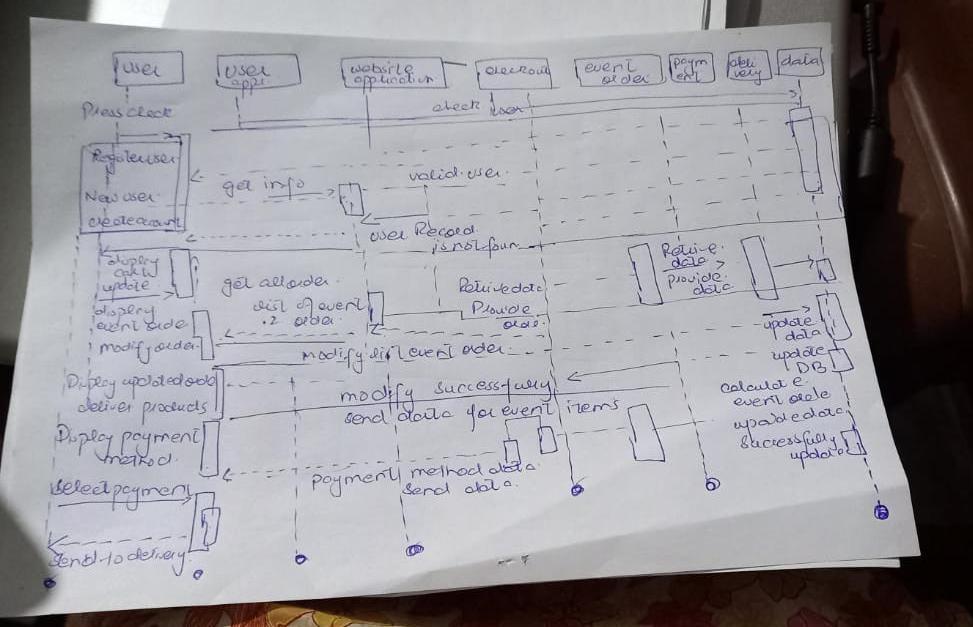 user
user
appi
website
application
checkout
event
order
paym
ent
deli
very
data
Press check
check user
Register user
New user
create account
get info
valid user
user Record
is not foun
display
update
get all order
list of event
order
Retrive data
Provide
Retrive
data
Provide
data
display
event orde
modify order
modify list event order
update
data
update
DB
Display updated
deliver products
modify successfully
send data for event items
calculate
event orde
update data
Successfully
update
Display payment
method
payment method data
send data
select payment
send to delivery